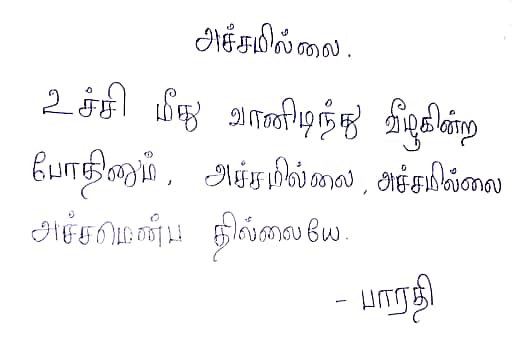 அச்சமில்லை.
உச்சி மீது வானிடிந்து வீழுகின்ற
போதினும், அச்சமில்லை, அச்சமில்லை
அச்சமென்ப தில்லையே.
- பாரதி